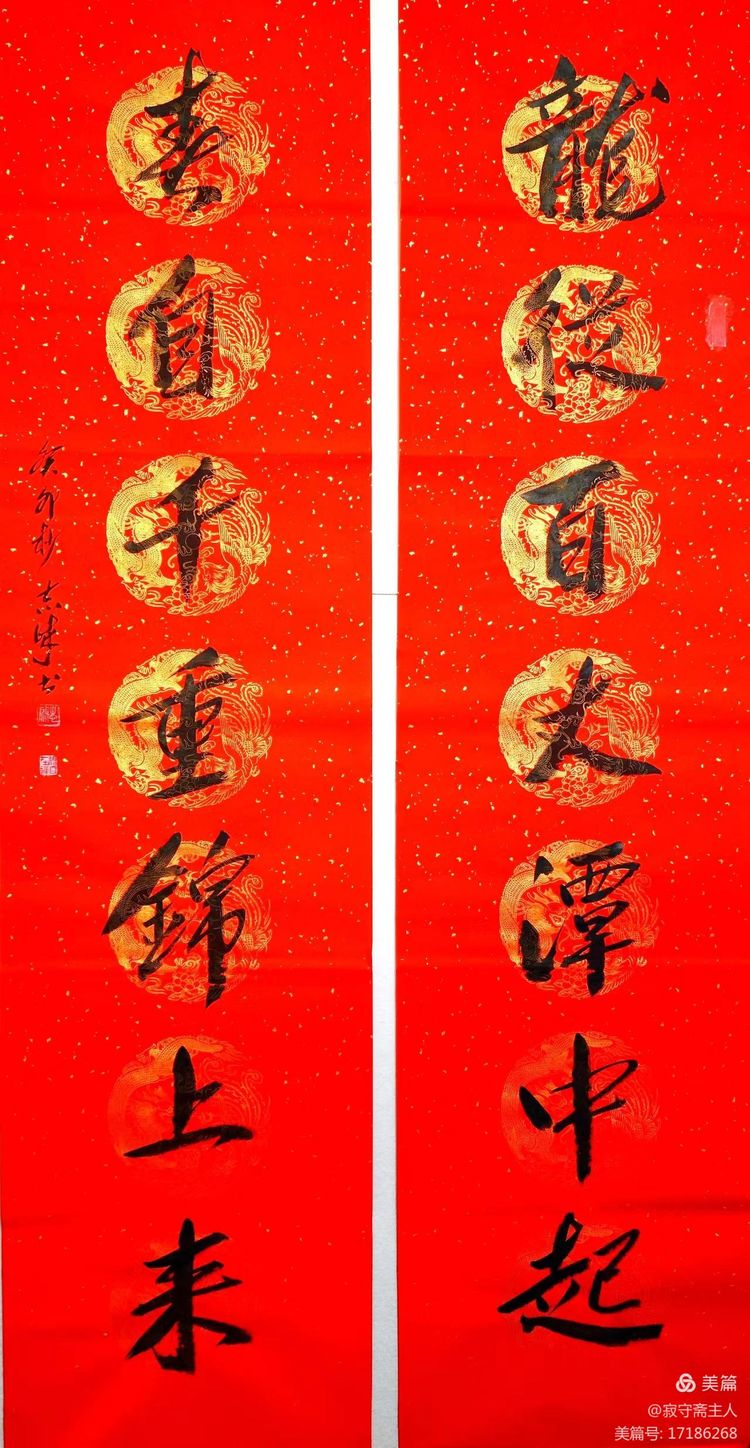 龍從百丈潭中起
春自千重錦上来
癸卯杪 志 书
美篇
@寂守斋主人
美篇号: 17186268